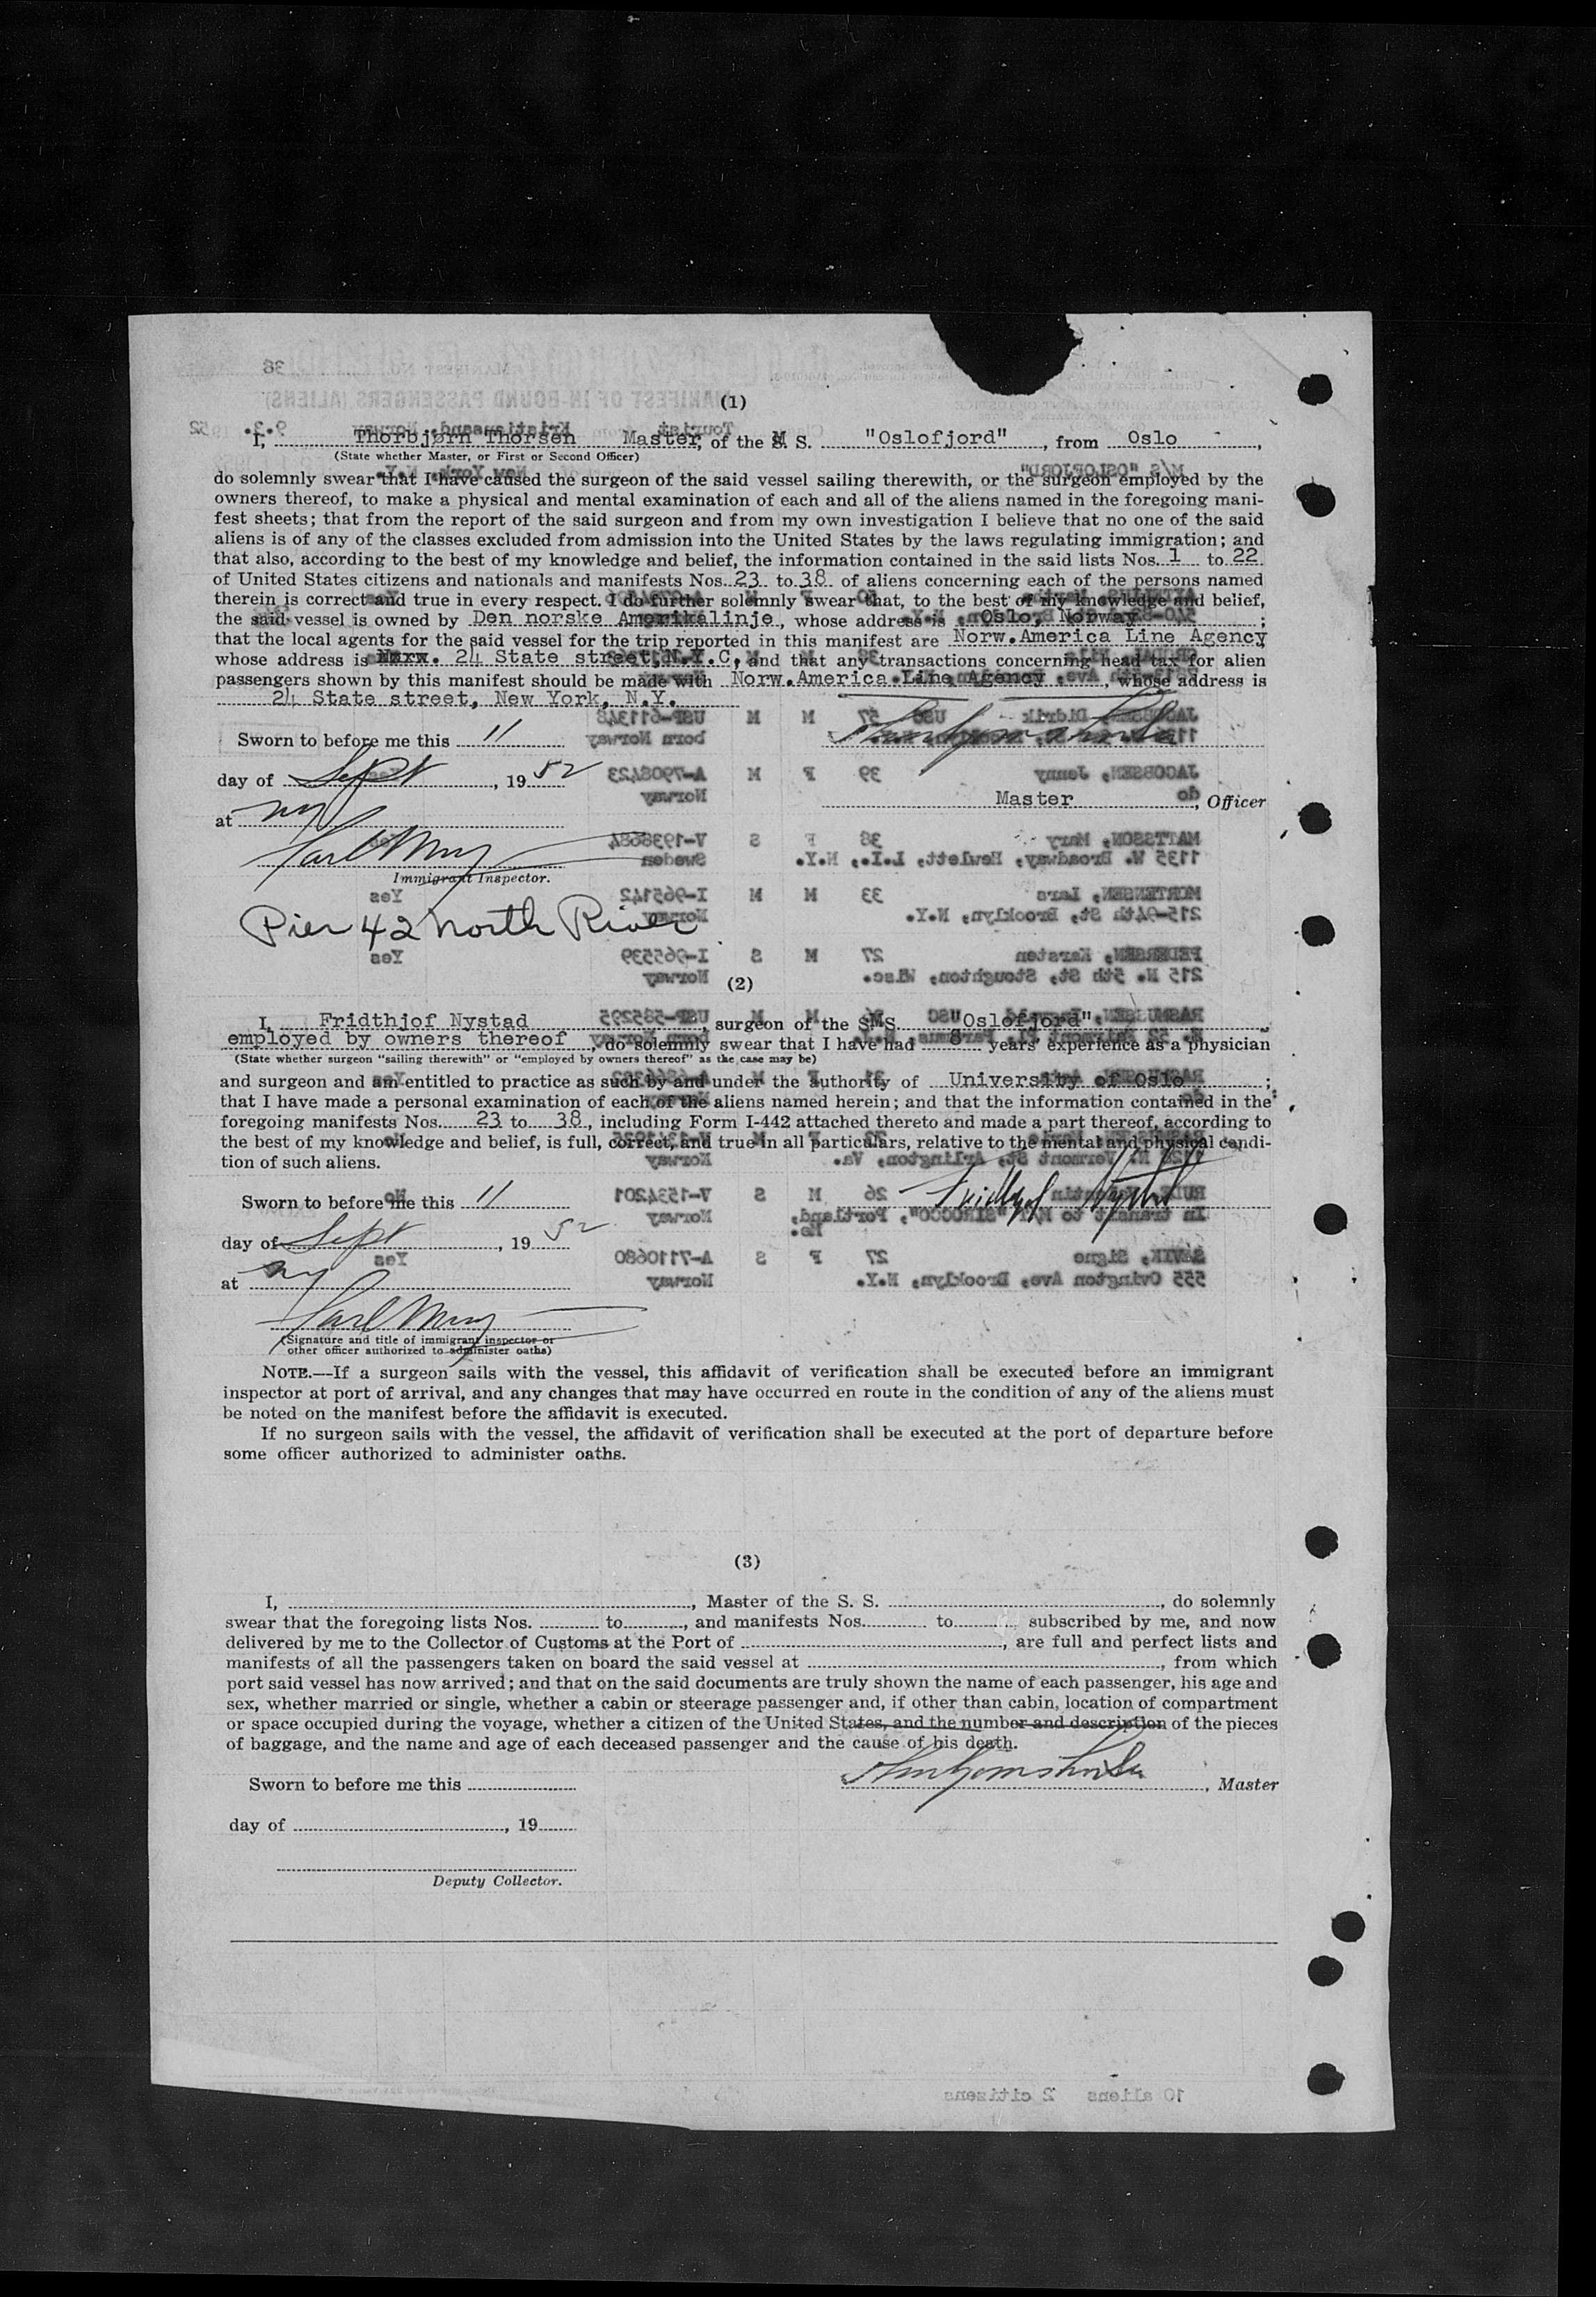 (1)
I, Thorbjørn Thorsen Master, of the M S. "Oslofjord", from Oslo,
(State whether Master, or First or Second Officer)
do solemnly swear that I have caused the surgeon of the said vessel sailing therewith, or the surgeon employed by the
owners thereof, to make a physical and mental examination of each and all of the aliens named in the foregoing mani-
fest sheets; that from the report of the said surgeon and from my own investigation I believe that no one of the said
aliens is of any of the classes excluded from admission into the United States by the laws regulating immigration; and
that also, according to the best of my knowledge and belief, the information contained in the said lists Nos. 1 to 22
of United States citizens and nationals and manifests Nos. 23 to 38 of aliens concerning each of the persons named
therein is correct and true in every respect. I do further solemnly swear that, to the best of my knowledge and belief,
the said vessel is owned by Den norske Amerikalinje, whose address is Oslo, Norway;
that the local agents for the said vessel for the trip reported in this manifest are Norw.America Line Agency
whose address is 24 State street, N.Y.C, and that any transactions concerning head tax for alien
passengers shown by this manifest should be made with Norw.America Line Agency, whose address is
24 State street, New York, N.Y.
Sworn to before me this 11
day of Sept, 1952
Master, Officer
at NY
Immigrant Inspector.
Pier 42 North River
(2)
I, Fridthjof Nystad, surgeon of the SMS. "Oslofjord",
employed by owners thereof, do solemnly swear that I have had 8 years' experience as a physician
(State whether surgeon "sailing therewith" or "employed by owners thereof" as the case may be)
and surgeon and am entitled to practice as such by and under the authority of University of Oslo;
that I have made a personal examination of each of the aliens named herein; and that the information contained in the
foregoing manifests Nos. 23 to 38, including Form I-442 attached thereto and made a part thereof, according to
the best of my knowledge and belief, is full, correct, and true in all particulars, relative to the mental and physical condi-
tion of such aliens.
Sworn to before me this 11
Fridthjof Nystad
day of Sept, 1952
at NY
(Signature and title of immigrant inspector or
other officer authorized to administer oaths)
NOTE.—If a surgeon sails with the vessel, this affidavit of verification shall be executed before an immigrant
inspector at port of arrival, and any changes that may have occurred en route in the condition of any of the aliens must
be noted on the manifest before the affidavit is executed.
If no surgeon sails with the vessel, the affidavit of verification shall be executed at the port of departure before
some officer authorized to administer oaths.
(3)
I, , Master of the S. S. , do solemnly
swear that the foregoing lists Nos. to , and manifests Nos. to subscribed by me, and now
delivered by me to the Collector of Customs at the Port of , are full and perfect lists and
manifests of all the passengers taken on board the said vessel at , from which
port said vessel has now arrived; and that on the said documents are truly shown the name of each passenger, his age and
sex, whether married or single, whether a cabin or steerage passenger and, if other than cabin, location of compartment
or space occupied during the voyage, whether a citizen of the United States, and the number and description of the pieces
of baggage, and the name and age of each deceased passenger and the cause of his death.
Sworn to before me this
, Master
day of , 19
Deputy Collector.